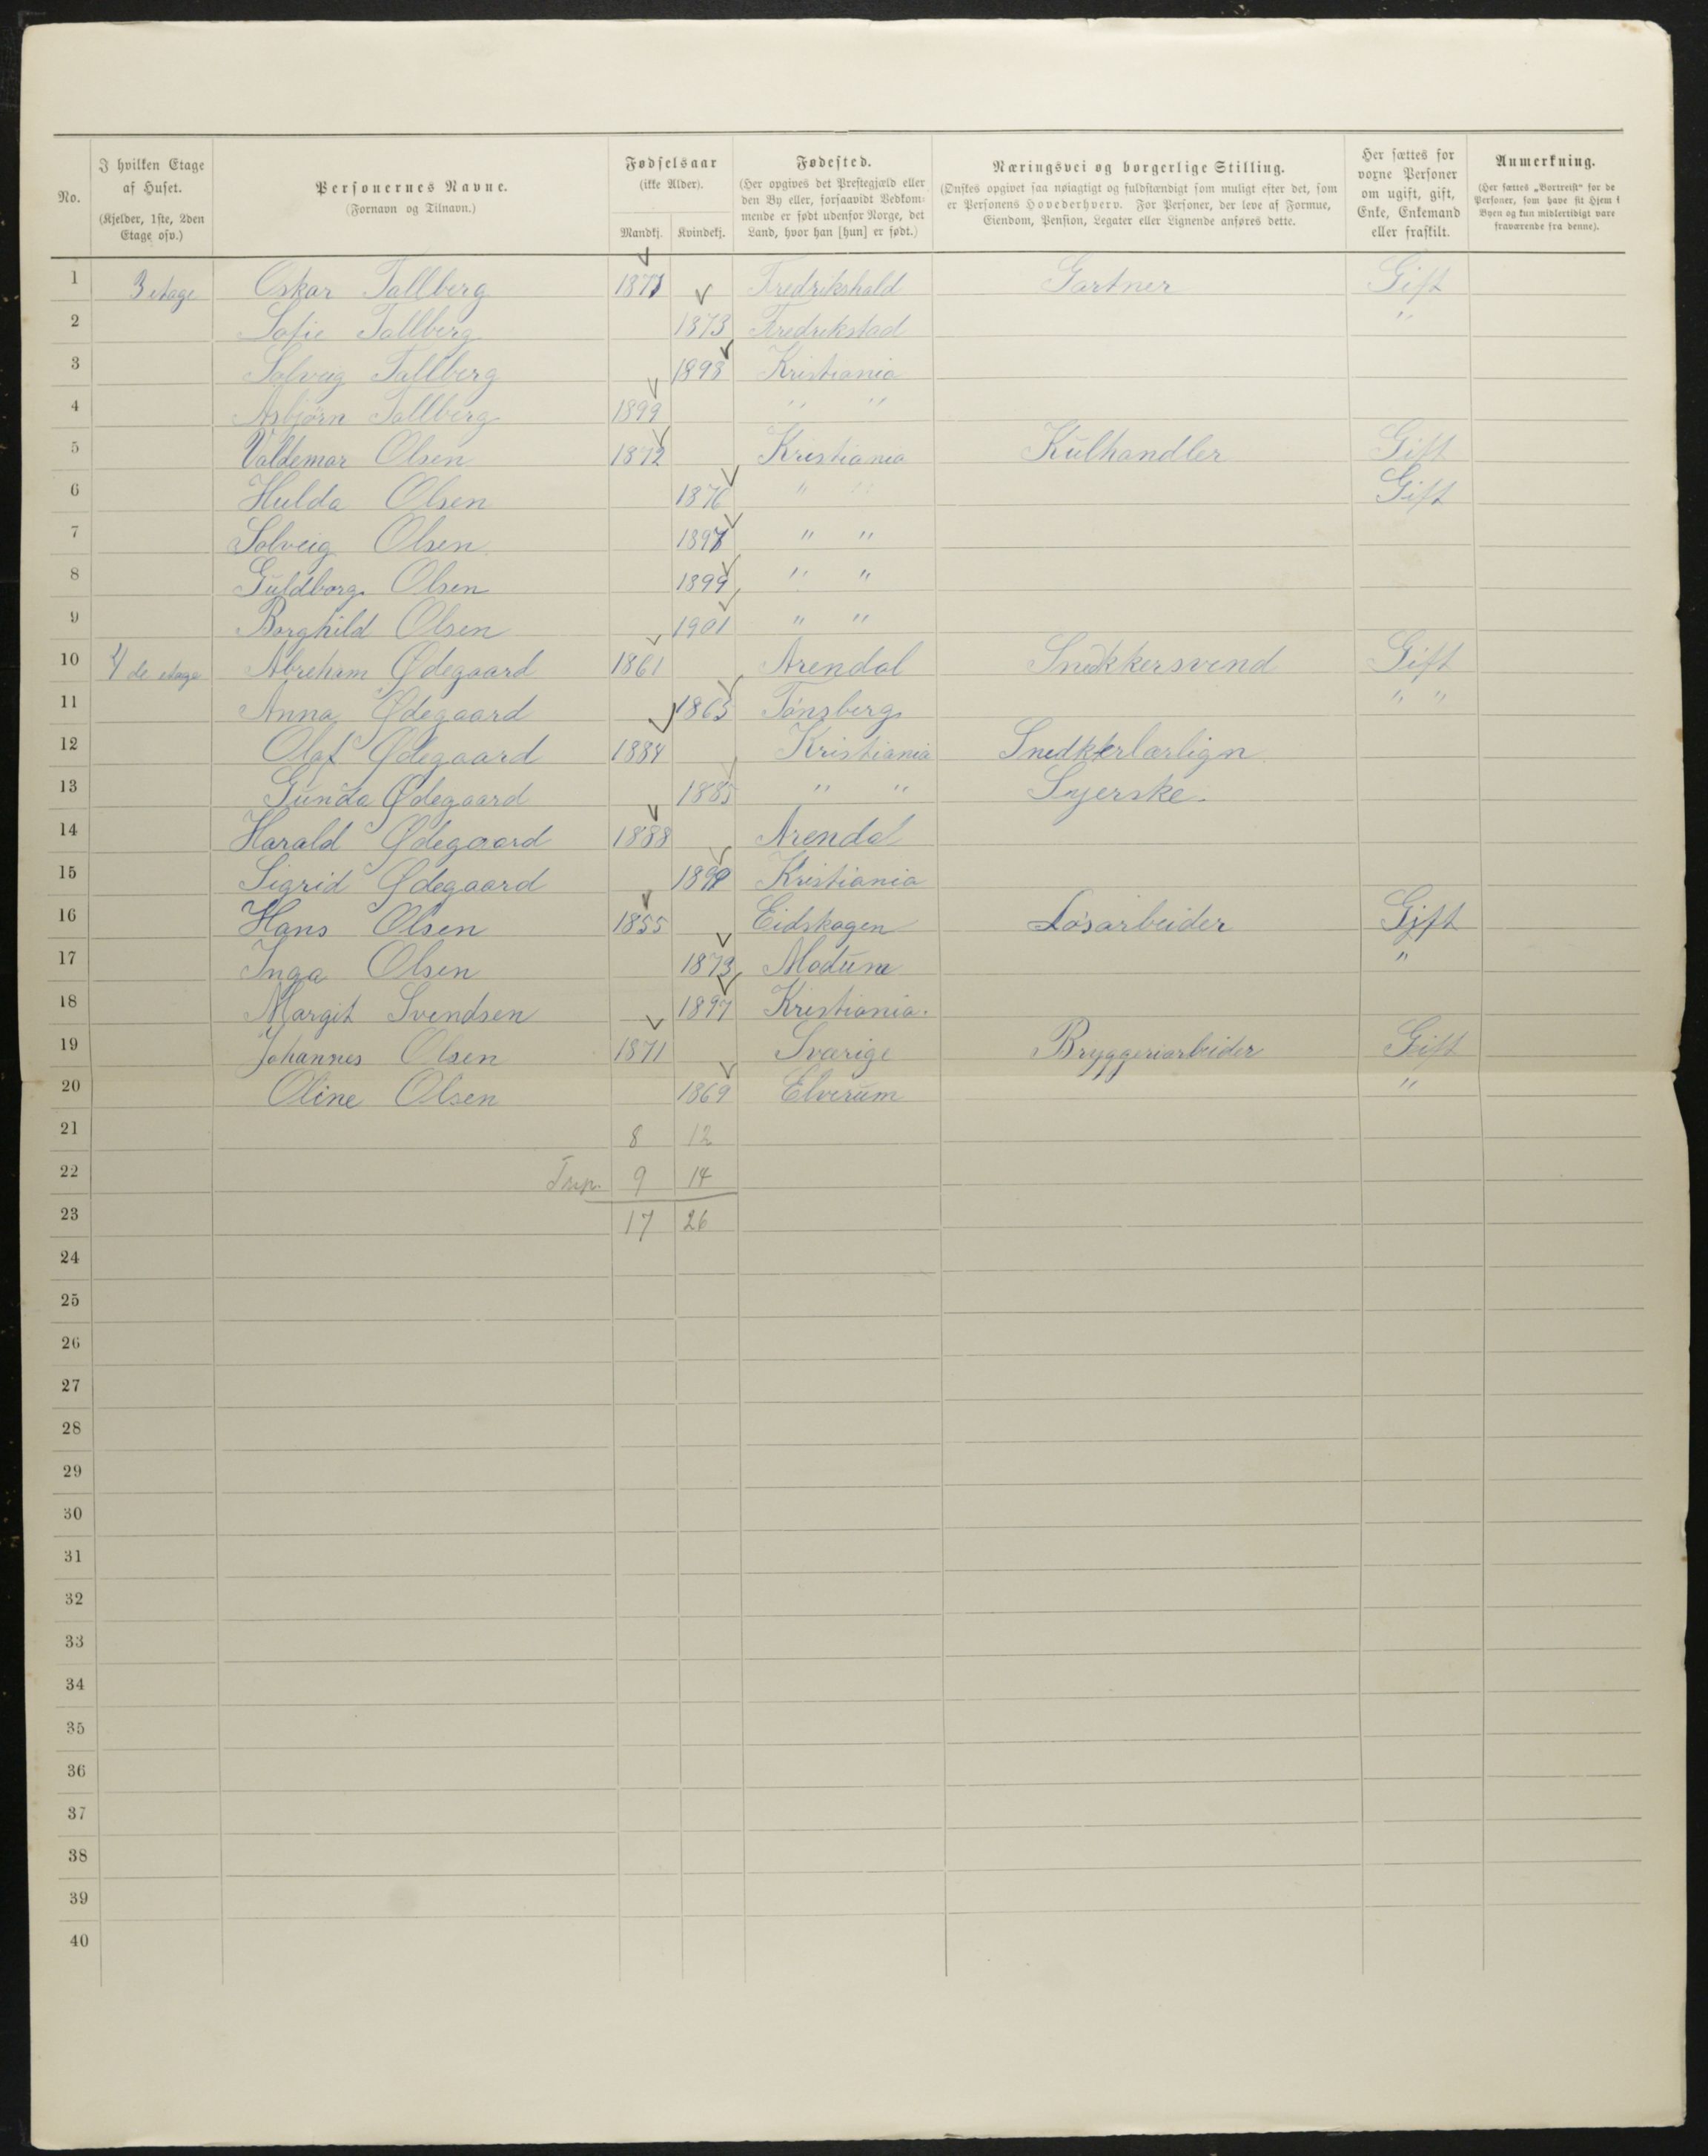 No.
I hvilken Etage af Huset. (Kjelder, 1ste, 2den Etage osv.)
Personernes Navne. (Fornavn og Tilnavn.)
Fødselsaar (ikke Alder).
Mandkj. Kvindekj.
Fødested. (Her opgives det Prestegjæld eller den By eller, forsaavidt Vedkommende er født udenfor Norge, det Land, hvor han [hun] er født.)
Næringsvei og borgerlige Stilling. (Ønskes opgivet saa nøiagtigt og fuldstændigt som muligt efter det, som er Personens Hovederhverv. For Personer, der leve af Formue, Eiendom, Pension, Legater eller Lignende anføres dette.
Her sættes for voxne Personer om ugift, gift, Enke, Enkemand eller fraskilt.
Anmerkning. (Her sættes „Bortreist“ for de Personer, som have sit Hjem i Byen og kun midlertidigt vare fraværende fra denne).
1 3 etage Oskar Tallberg 1871 Fredrikshald Gartner Gift
2 Sofie Tallberg 1873 Fredrekstad "
3 Solveig Tallberg 1898 Kristiania
4 Asbjørn Tallberg 1899 " "
5 Valdemar Olsen 1872 Kristiania Kulhandler Gift
6 Hulda Olsen 1876 " " Gift
7 Solveig Olsen 1897 " "
8 Guldborg Olsen 1899 " "
9 Borghild Olsen 1901 " "
10 4 de etage Abreham Ødegaard 1861 Arendal Snedkkersvend Gift
11 Anna Ødegaard 1863 Tønsberg " "
12 Olaf Ødegaard 1884 Kristiania Snedkkerlærlign
13 Gunda Ødegaard 1885 " " Syerske.
14 Harald Ødegaard 1888 Arendal
15 Sigrid Ødegaard Kristiania
16 Hans Olsen 1855 Eidskogen Løsarbeider Gift
17 Inga Olsen 1873 Modum "
18 Margit Svendsen 1897 Kristiania.
19 Johannes Olsen 1871 Sværige Bryggeriarbeider Gift
20 Oline Olsen 1869 Elverum "
21 8 12
22 9 14
23 17 26
24
25
26
27
28
29
30
31
32
33
34
35
36
37
38
39
40